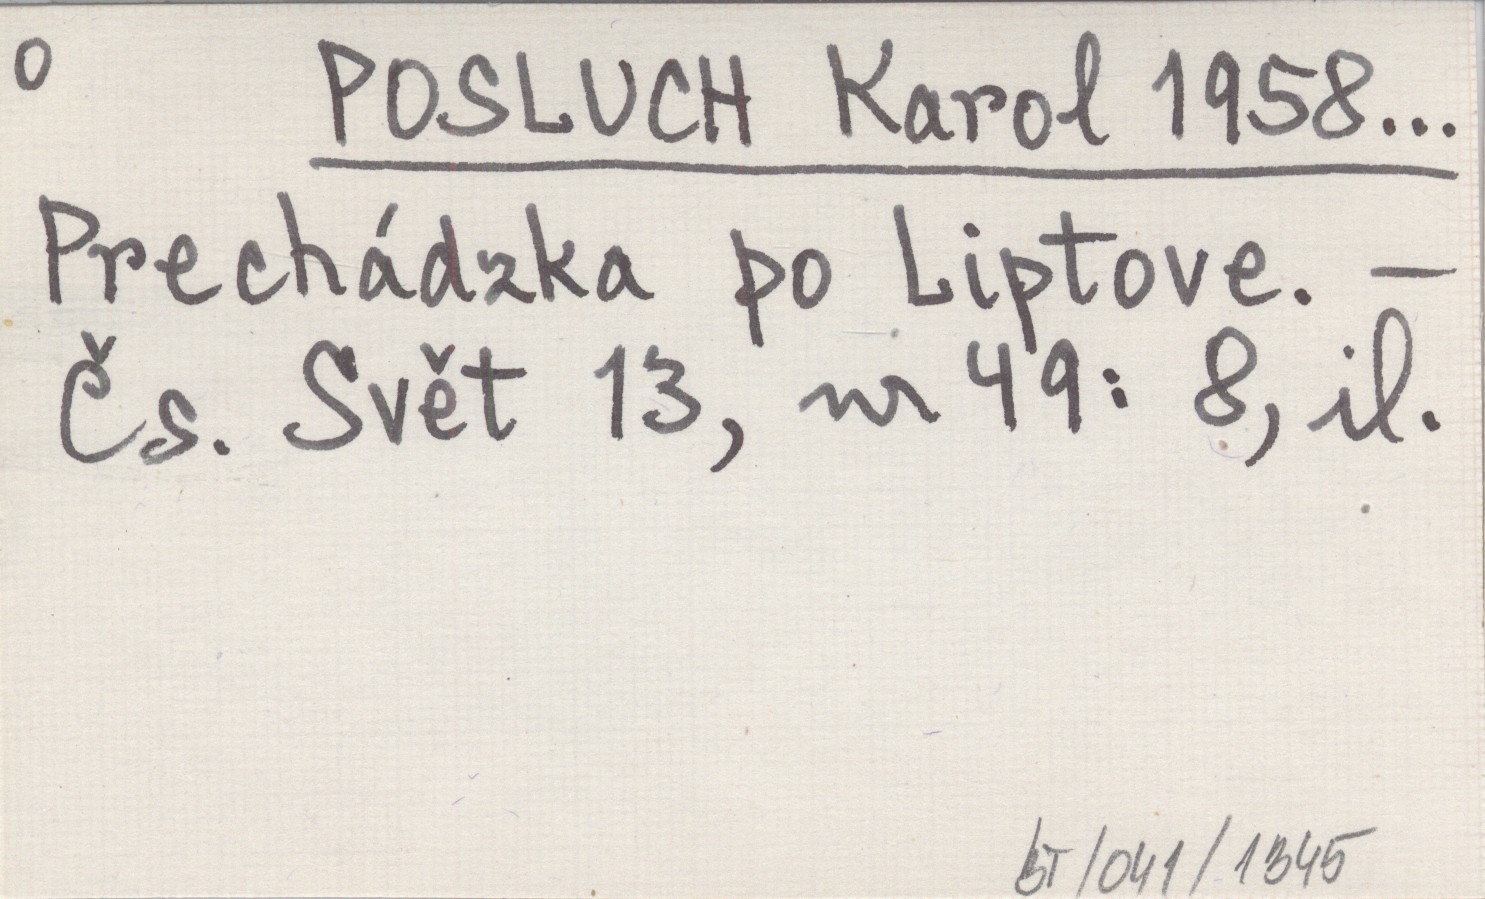 O POSLUCH Karol 1958...
Prechádzka po Liptove. —
Čs. Svět 13, nr 49: 8, il.
BT/041/1345